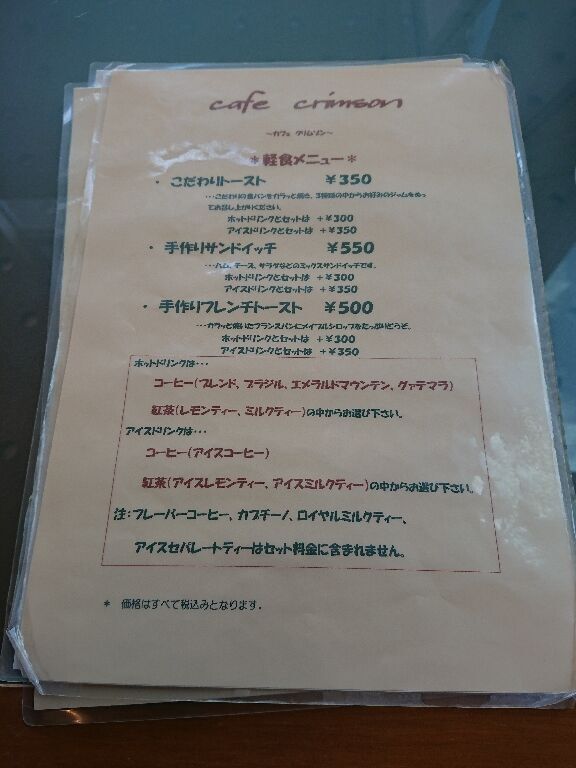 cafe crimson
～カフェ クリムゾン～
＊軽食メニュー＊
・ こだわりトースト ￥350
・・・こだわりの食パンをカラッと焼き、3種類の中からお好みのジャムをぬっ
てお召し上がりください。
ホットドリンクとセットは ＋￥300
アイスドリンクとセットは ＋￥350
・ 手作りサンドイッチ ￥550
・・・ハム、チーズ、サラダなどのミックスサンドイッチです。
ホットドリンクとセットは ＋￥300
アイスドリンクとセットは ＋￥350
・ 手作りフレンチトースト ￥500
・・・カラッと焼いたフランスパンにメイプルシロップをたっぷりどうぞ。
ホットドリンクとセットは ＋￥300
アイスドリンクとセットは ＋￥350
ホットドリンクは・・・
コーヒー（ブレンド、ブラジル、エメラルドマウンテン、グァテマラ）
紅茶（レモンティー、ミルクティー）の中からお選び下さい。
アイスドリンクは・・・
コーヒー（アイスコーヒー）
紅茶（アイスレモンティー、アイスミルクティー）の中からお選び下さい。
注：フレーバーコーヒー、カプチーノ、ロイヤルミルクティー、
アイスセパレートティーはセット料金に含まれません。
＊ 価格はすべて税込みとなります．